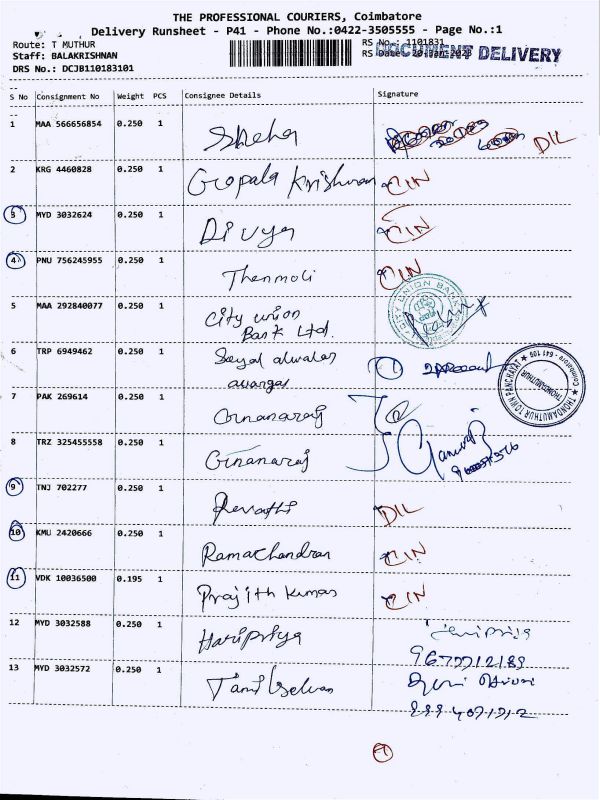 THE PROFESSIONAL COURIERS, Coimbatore
Delivery Runsheet - P41 - Phone No.:0422-3505555 - Page No.:1
Route: T MUTHUR RS No.: 1101831
Staff: BALAKRISHNAN RS Date: 20-Jan-2023 DOCUMENT DELIVERY
DRS No.: DCJB110183101
S No Consignment No Weight PCS Consignee Details Signature
1 MAA 566656854 0.250 1 Sneha DIL
2 KRG 4460828 0.250 1 Gopala Krishnan CIN
3 MYD 3032624 0.250 1 Divya CIN
4 PNU 756245955 0.250 1 Thenmoli CIN
5 MAA 292840077 0.250 1 City union
Bank Ltd.
CITY UNION BANK
6 TRP 6949462 0.250 1
THONDAMUTHUR TOWN PANCHAYAT
THONDAMUTHUR
Coimbatore - 641 109
7 PAK 269614 0.250 1 Gnanaraj
8 TRZ 325455558 0.250 1 Gnanaraj
9 TNJ 702277 0.250 1 Revathi DIL
10 KMU 2420666 0.250 1 Ramachandran CIN
11 VDK 10036500 0.195 1 Prajith Kumar CIN
12 MYD 3032588 0.250 1 Haripriya
13 MYD 3032572 0.250 1 Tamil Selvan